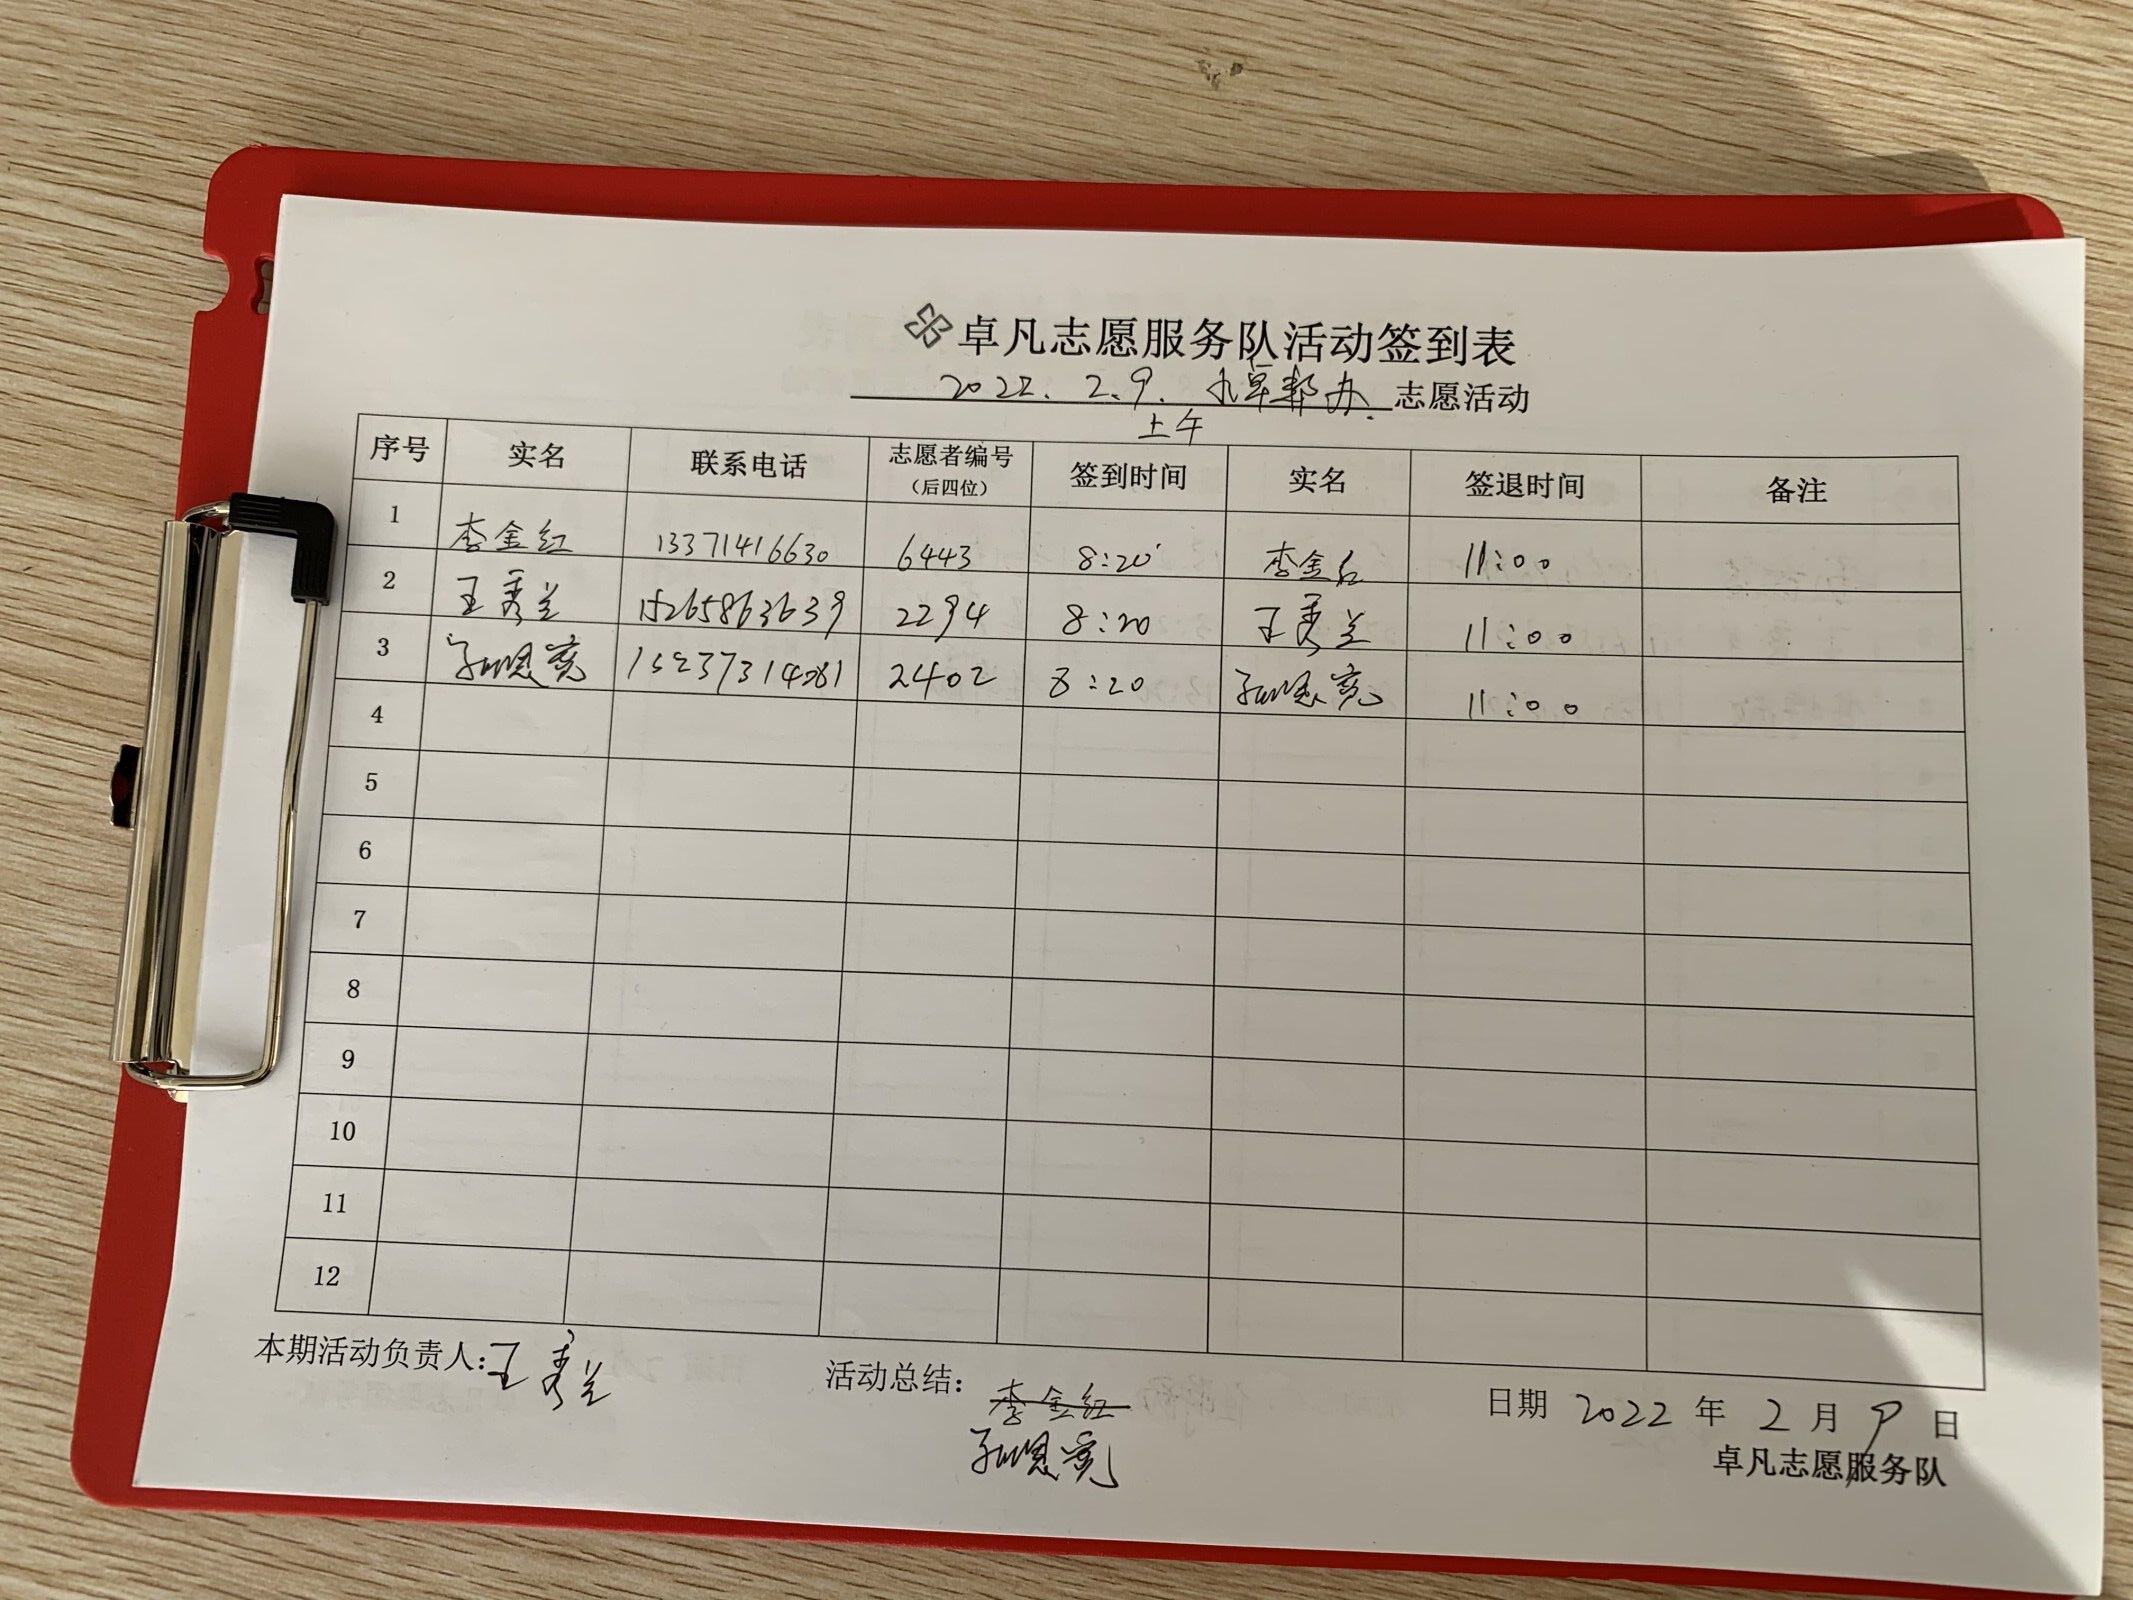 卓凡志愿服务队活动签到表
2022.2.9. 帮办 志愿活动
上午
序号 实名 联系电话 志愿者编号（后四位） 签到时间 实名 签退时间 备注
1 李金红 13371416630 6443 8:20 李金红 11:00
2 王秀兰 15265863639 2294 8:20 王秀兰 11:00
3 2402 8:20 11:00
4
5
6
7
8
9
10
11
12
本期活动负责人：王秀兰 活动总结：李金红 日期 2022 年 2 月 9 日
卓凡志愿服务队